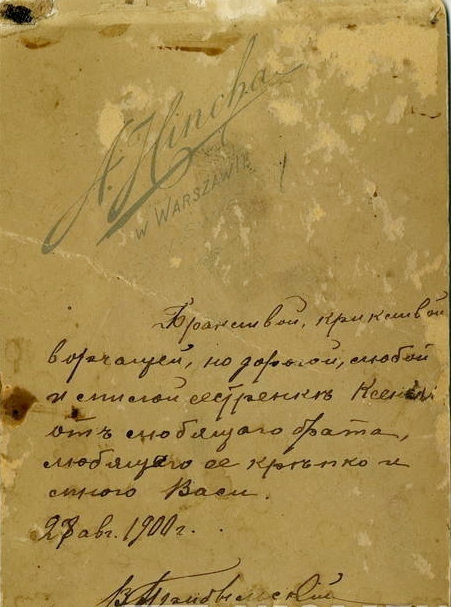 A. Hincha
W WARSZAWIE
Бранливой, крикливой
ворчащей, но дорогой, любой
и милой сестренкѣ Ксении
отъ любящаго брата,
любящего ее крѣпко и
много Васи.
28 авг. 1900 г.
В